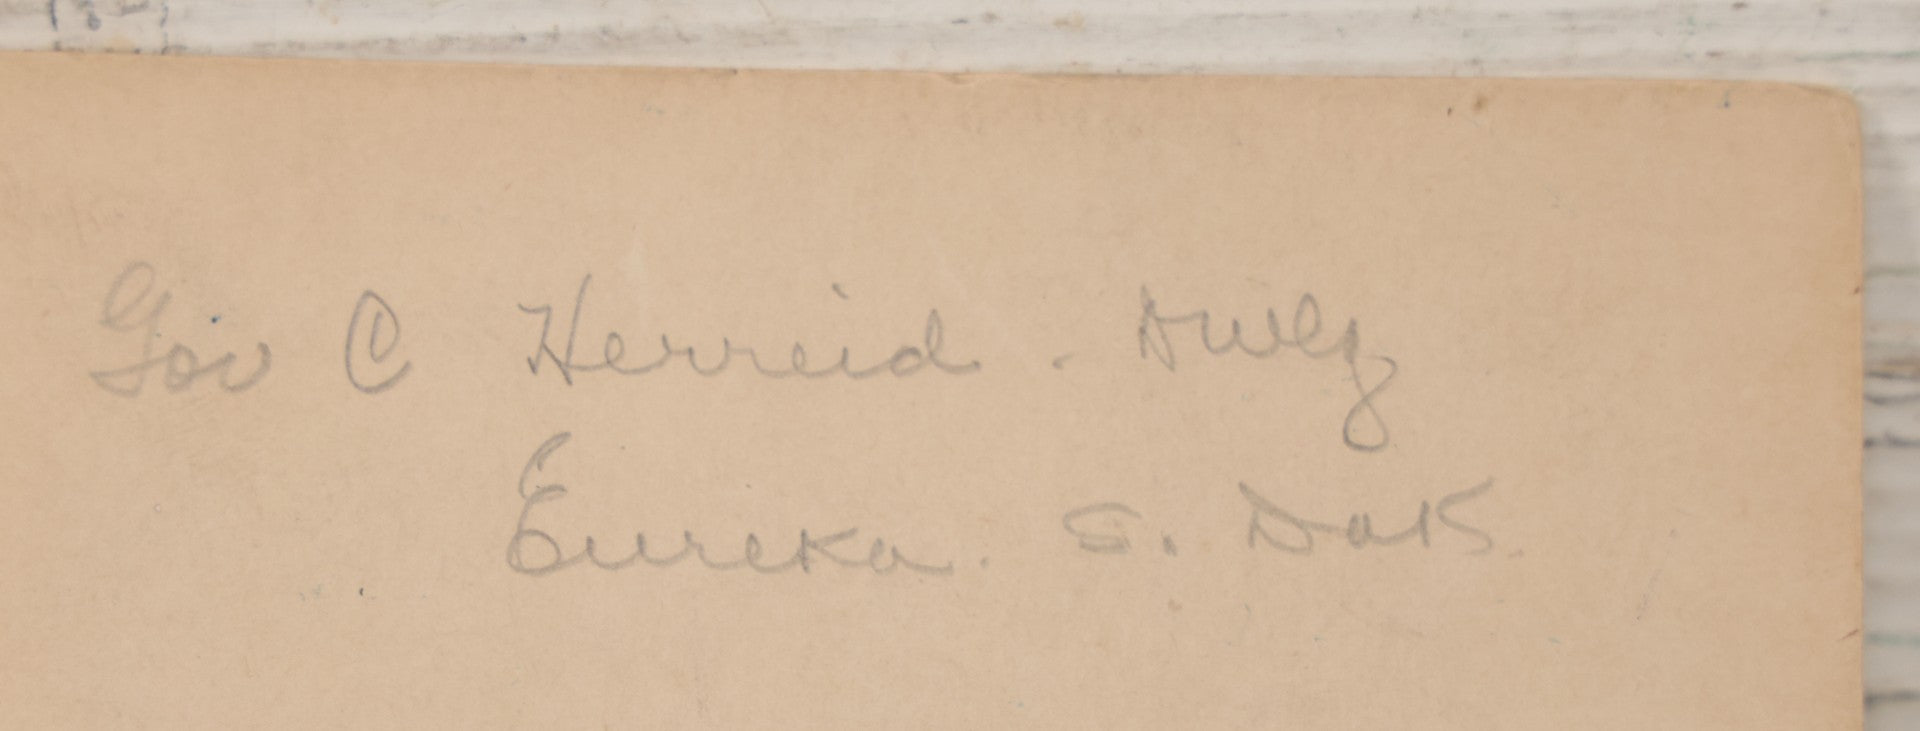 Gov C Herreid . Dwlg
Eureka. S. Dak.